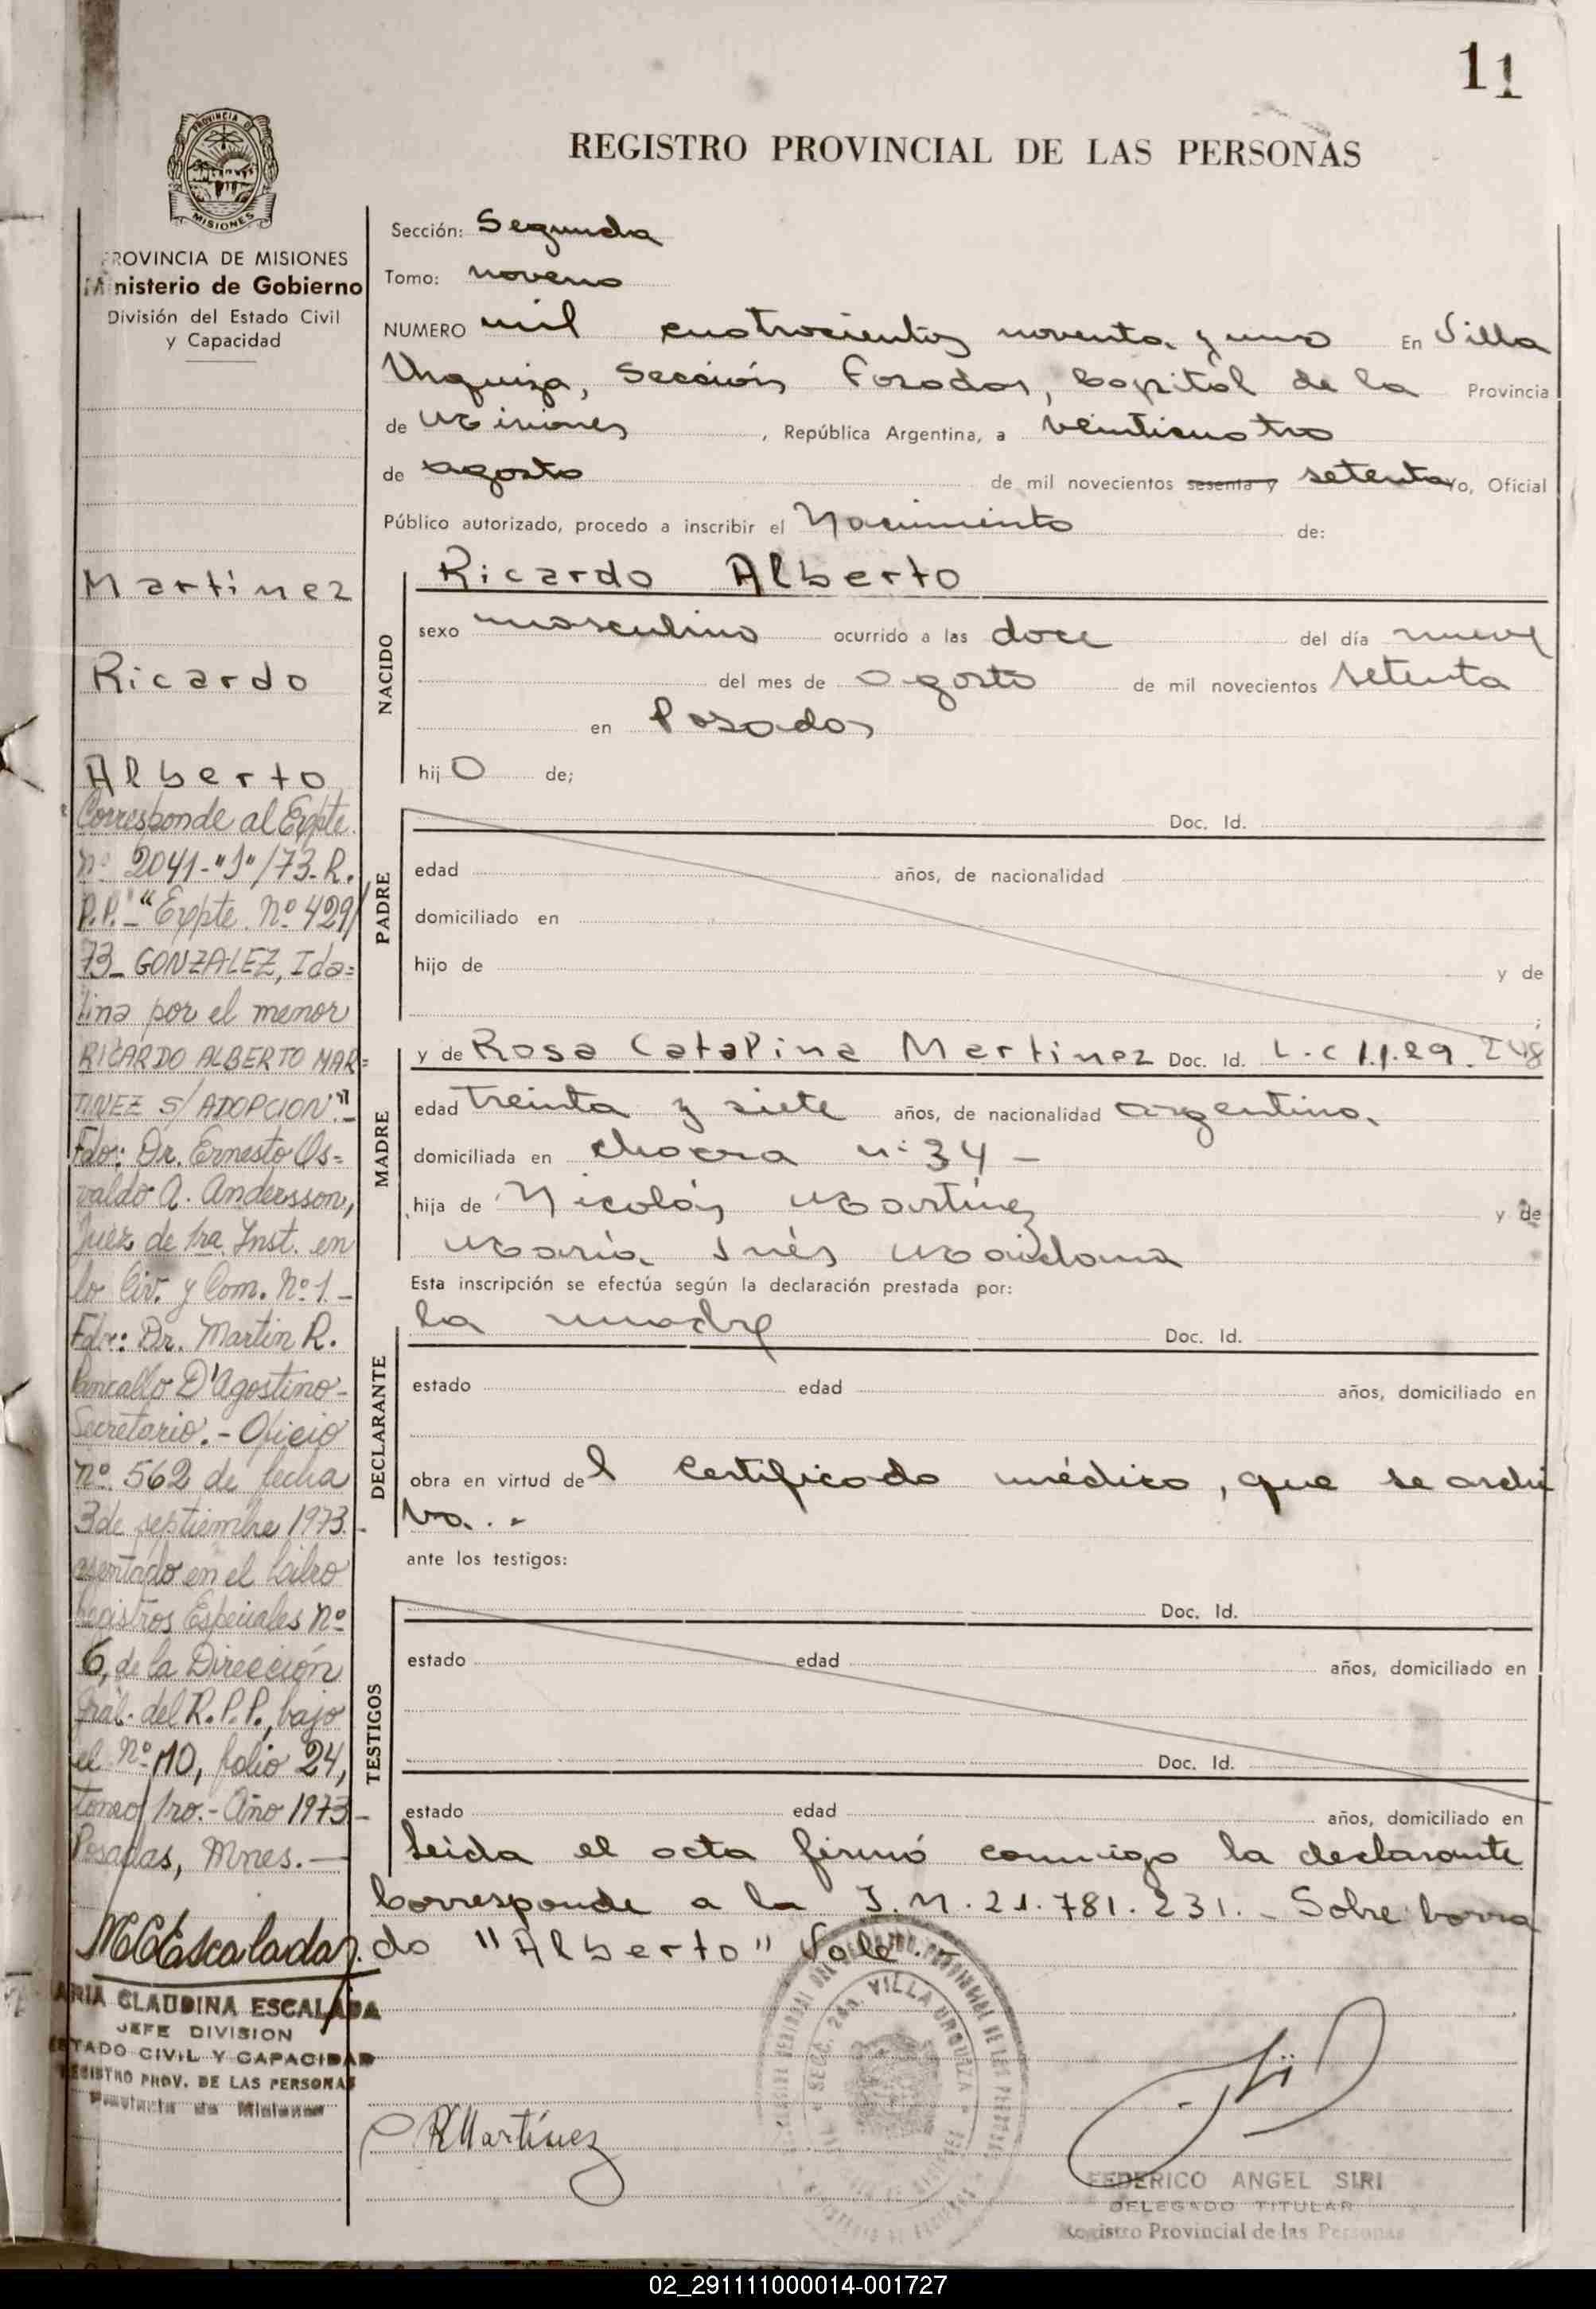 11
REGISTRO PROVINCIAL DE LAS PERSONAS
PROVINCIA DE
MISIONES
PROVINCIA DE MISIONES
Ministerio de Gobierno
División del Estado Civil
y Capacidad
Martínez
Ricardo
Alberto
Corresponde al Expte.
nº 2041-"J"/73-R.
P.P. - "Expte. Nº 429/
73 - GONZALEZ, Ida=
lina por el menor
RICARDO ALBERTO MAR=
TINEZ S/ ADOPCION".-
Fdo: Dr. Ernesto Os=
valdo A. Andersson,
Juez de 1ra. Inst. en
lo Civ. y Com. Nº 1.-
Fdo: Dr. Martin R.
D'Agostino-
Secretario.- Oficio
nº 562 de fecha
3 de septiembre 1973.-
asentado en el Libro
Registros Especiales Nº
6, de la Dirección
Gral. del R.P.P., bajo
el Nº 110, folio 24,
tomo 1ro.- Año 1973-
Posadas, Mnes.-
MCEscalada
ARIA CLAUDINA ESCALADA
JEFE DIVISION
ESTADO CIVIL Y CAPACIDAD
REGISTRO PROV. DE LAS PERSONAS
Provincia de Misiones
Sección: Segunda
Tomo: noveno
NUMERO mil cuatrocientos noventa y uno En Villa
Urquiza, Sección Posadas, Capital de la Provincia
de Misiones, República Argentina, a veinticuatro
de agosto de mil novecientos sesenta y setenta yo, Oficial
Público autorizado, procedo a inscribir el Nacimiento de:
NACIDO
Ricardo Alberto
sexo masculino ocurrido a las doce del día nueve
del mes de agosto de mil novecientos setenta
en Posadas
hijo de;
PADRE
Doc. Id.
edad años, de nacionalidad
domiciliado en
hijo de y de
;
MADRE
y de Rosa Catalina Martinez Doc. Id. L.C 1.1.29.248
edad treinta y siete años, de nacionalidad argentina,
domiciliada en chacra nº 34 -
hija de Nicolás Martínez y de
María Inés Maidana
Esta inscripción se efectúa según la declaración prestada por:
DECLARANTE
la madre Doc. Id.
estado edad años, domiciliado en
obra en virtud del certificado médico, que se archi
va. .-
ante los testigos:
TESTIGOS
Doc. Id.
estado edad años, domiciliado en
Doc. Id.
estado edad años, domiciliado en
Leida el acta firmó conmigo la declarante
Corresponde a la I.M. 21.781.231.- Sobre borra
do "Alberto" Vale.-
SECC. 2da. VILLA URQUIZA
RMartínez
FEDERICO ANGEL SIRI
DELEGADO TITULAR
Registro Provincial de las Personas
02_291111000014-001727